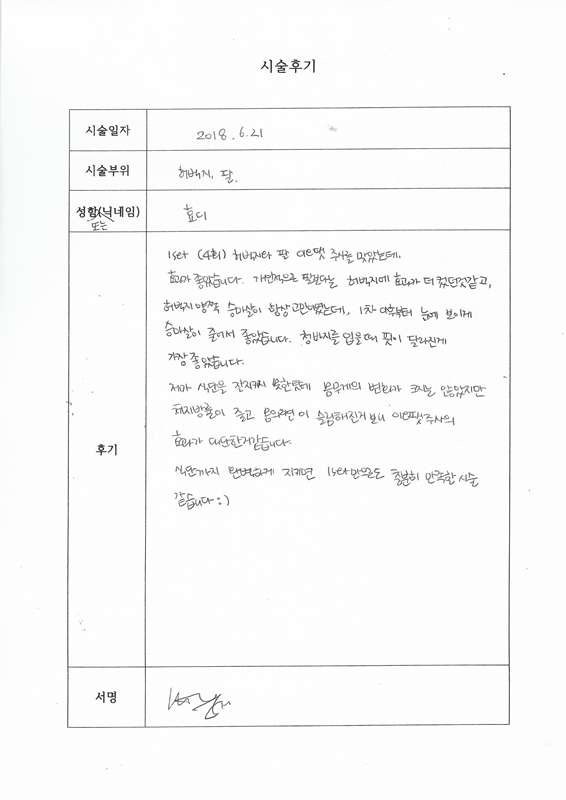 시술후기
시술일자
2018.6.21
시술부위
허벅지, 팔.
성함(닉네임)
또는
효디
후기
1set (4회) 허벅지와 팔 주사를 맞았는데,
효과가 좋았습니다. 개인적으론 팔보다는 허벅지에 효과가 더 컸던것같고,
허벅지 양쪽 승마살이 항상 고민이였는데, 1차 이후부터 눈에 보이게
승마살이 줄어서 좋았습니다. 청바지를 입을때 핏이 달라진게
가장 좋았습니다.
제가 식단을 잘지키지 못한탓에 몸무게의 변화가 크지는 않았지만
체지방률이 줄고 몸의라인이 슬림해진거 보니 이오팻주사의
효과가 대단한거같습니다.
식단까지 완벽하게 지키면 1set만으로도 충분히 만족할 시술
같습니다 :)
서명